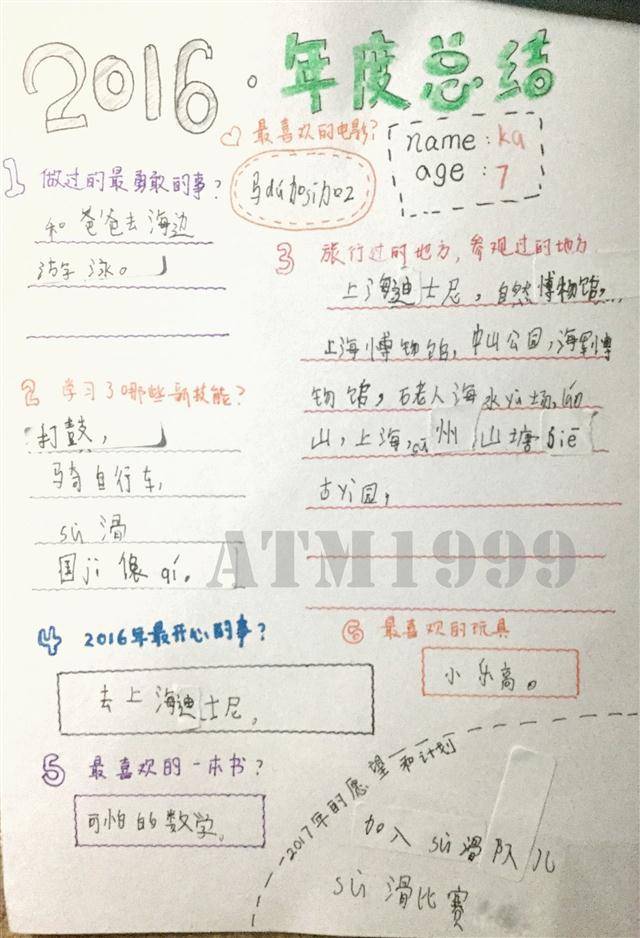 2016·年度总结
♡ 最喜欢的电影?
马dá加sī加2
name: ka
age: 7
1 做过的最勇敢的事?
和爸爸去海边
游泳。
2 学习了哪些新技能?
打鼓,
骑自行车,
sù滑
国ji像qí。
3 旅行过的地方,参观过的地方
上海迪士尼,自然博物馆,
上海博物馆,中山公园,海军博
物馆,石老人海水yù场,láo
山,上海,州山塘jiē
古yī园,
4 2016年最开心的事?
去上海迪士尼。
6 最喜欢的玩具
小乐高。
5 最喜欢的一本书?
可怕的数学。
2017年的愿望和计划
加入sù滑队儿
sù滑比赛
ATM1999